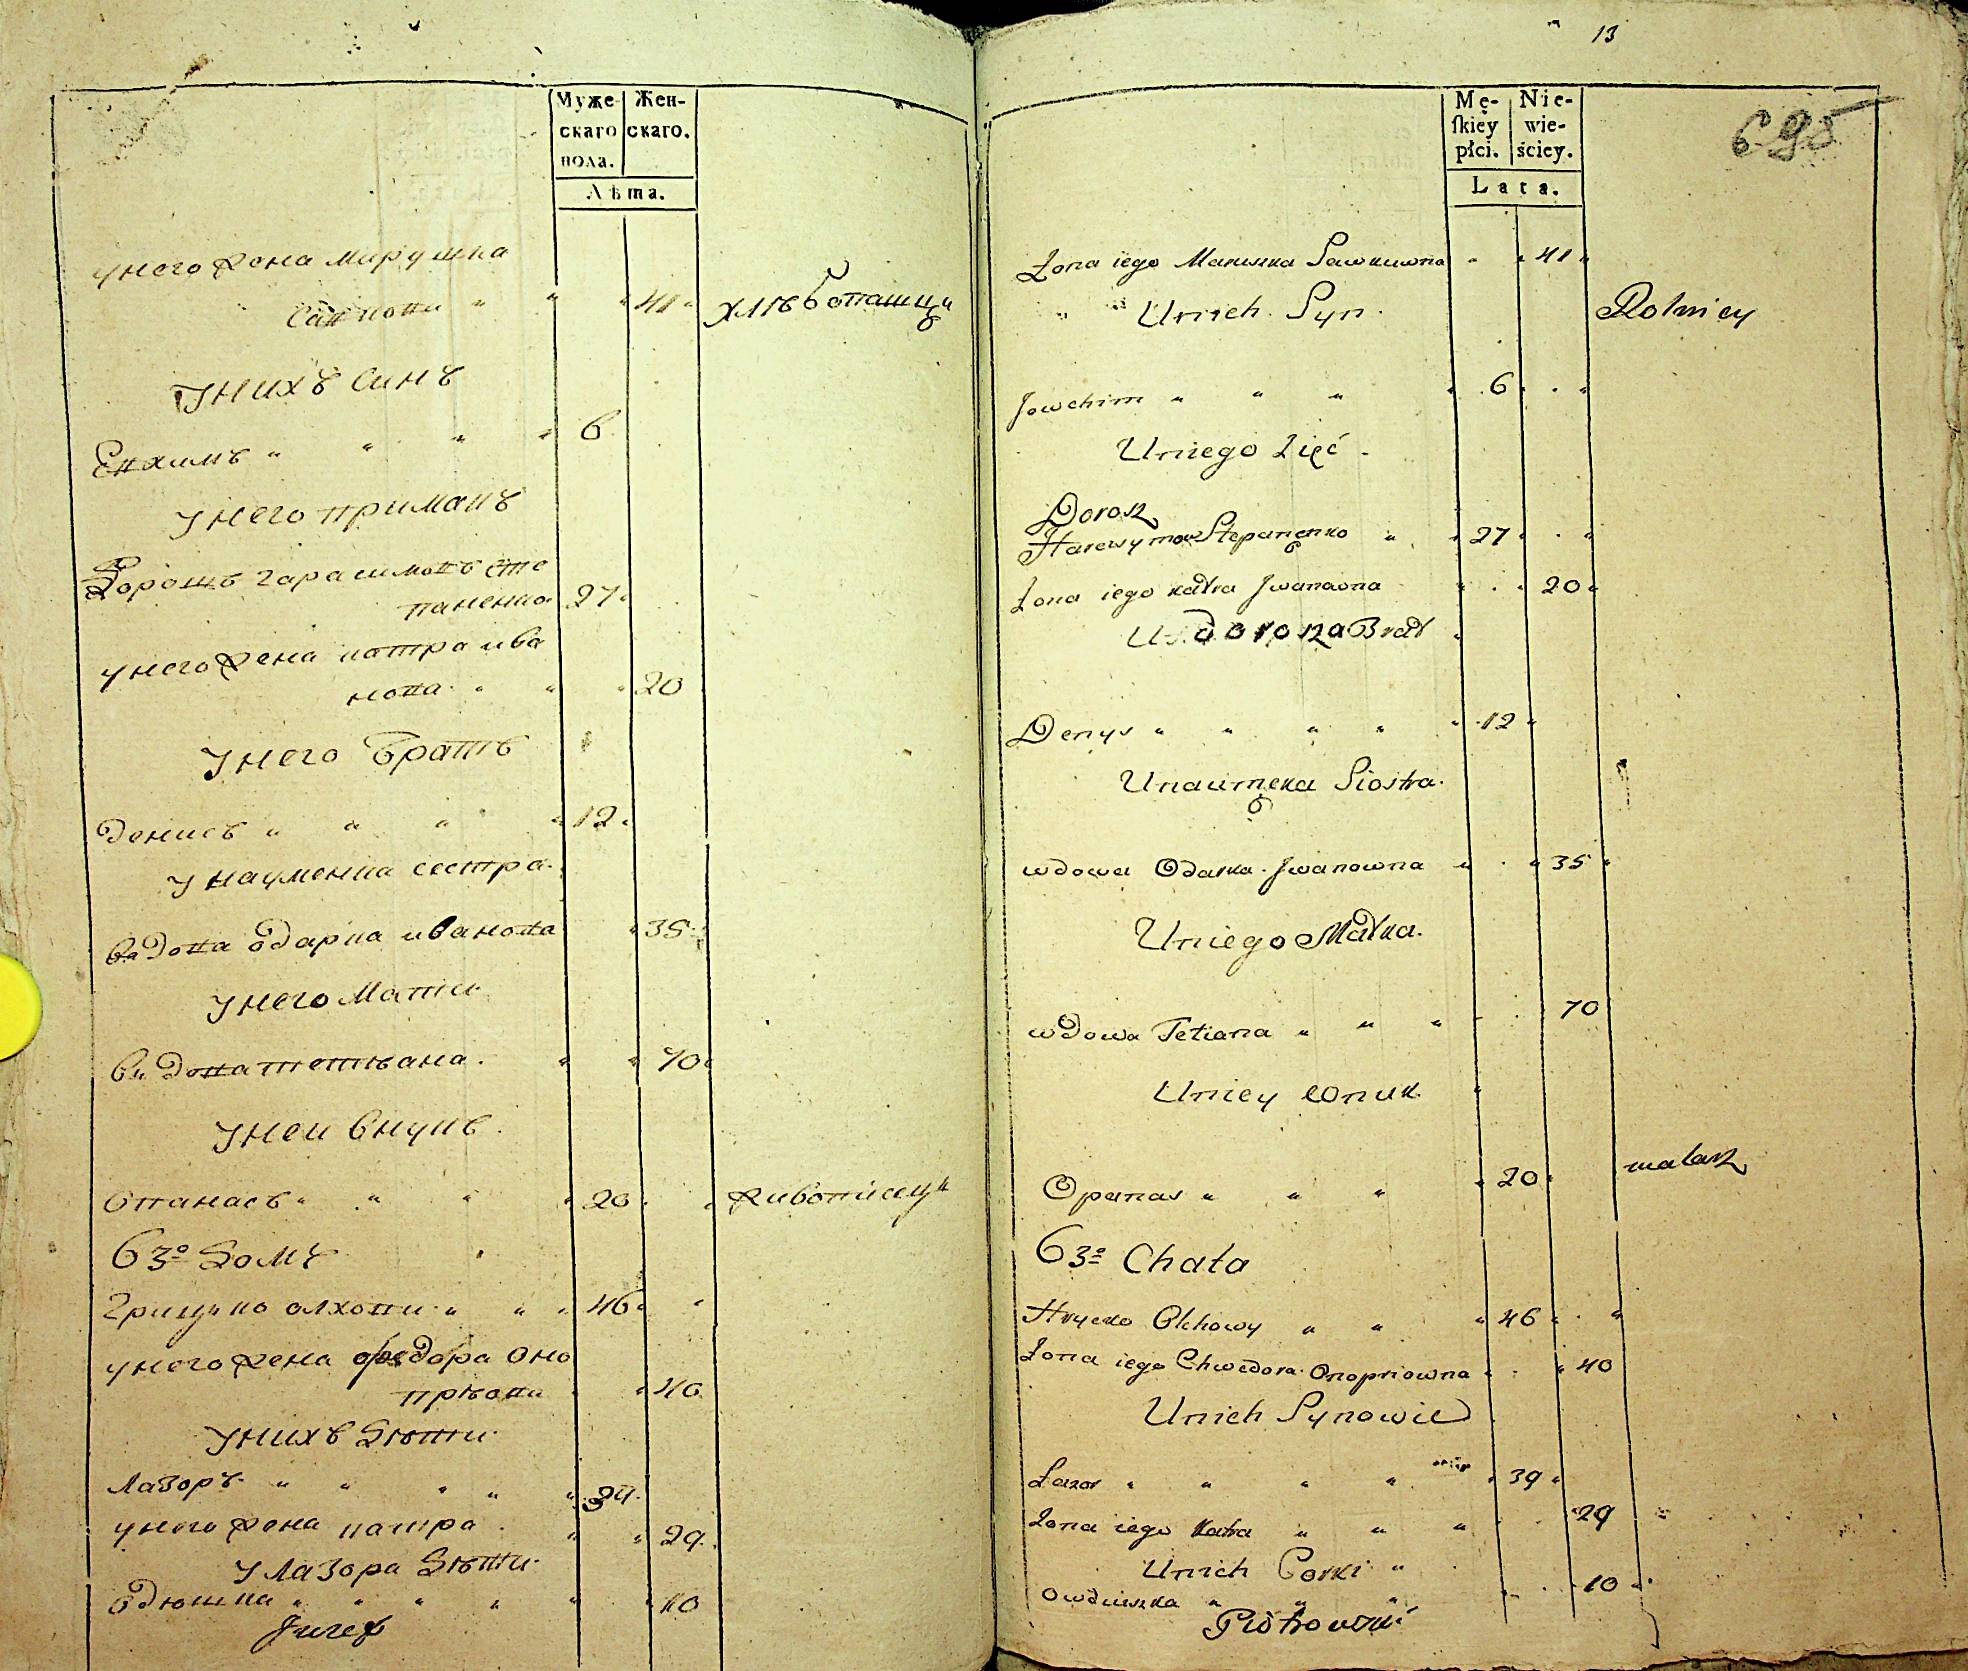 Муже-
скаго
пола.
Жен-
скаго.
Лѣта.
у него жена Марушка
Савкови " " " 41 " хлѣбопашци
у нихъ синъ
Евхимъ " " " " 6
у него примакъ
Дорошъ Гарасимовъ Сте
паненко 27
у него жена катра ива
нова " " " 20
у него братъ
Денисъ " " " " 12
у науменка сестра
вдова Одарка иванова " 35
у него мати
вдова тетьяна " " 70
у неи внукъ
Опанасъ " " " " 20 " живописец
63º Домъ
Грицко олхови " " " 46 "
у него жена федора оно
прѣови " 40
у нихъ Дѣти
Лазоръ " " " " " 39
у него жена катра " " 29
у Лазора Дѣти
Одюшка " " " " " 10
Juzef
13
695
Mę-
skiey
płci.
Nie-
wie-
ściey.
Lata.
Żona iego Maruszka Sawkuwna " " 41 "
" " Unich Syn Rolnicy
Jowchim " " " " 6 " "
Uniego Zięć
Dorosz
Harasymow Stepanenko " " 27 " "
Żona iego Katra Jwanowna " " 20 "
U dorosza Brat "
Denys " " " " " 12 "
Unaumenka Siostra
wdowa Odarka Jwanowna " " 35 "
Uniego Matka
wdowa Tetiana " " " 70
Uniey wnuk "
Opanas " " " " 20 " malarz
63º Chata
Hrycko Olchowy " " " 46 " "
Żona iego Chwedora Onopriowna " " 40
Unich Synowie
Łazor " " " " " 39 "
Żona iego Katra " " " 29
Unich Corki "
Owdiuszka " " " 10 "
Piotrowski